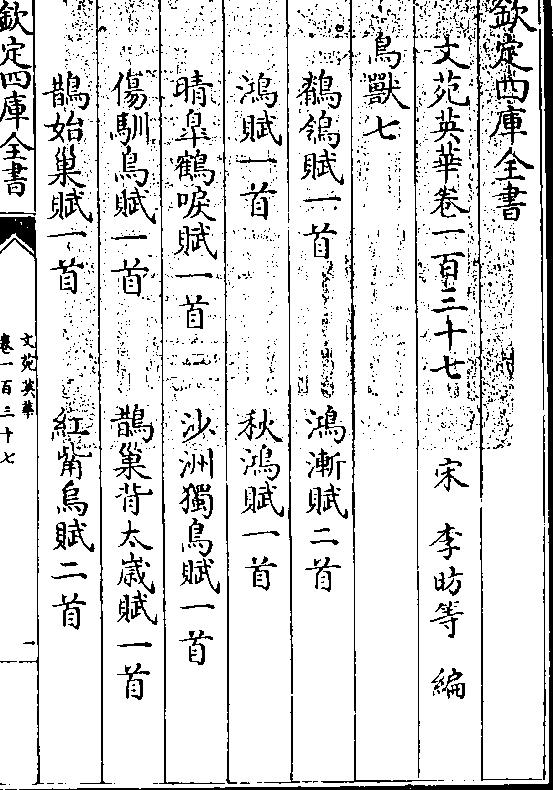 欽定四庫全書
文苑英華卷一百三十七　宋　李昉等　編
鳥獸七
鶺鴒賦一首　鴻漸賦二首
鴻賦一首　秋鴻賦一首
晴皐鶴唳賦一首　沙洲獨鳥賦一首
傷馴鳥賦一首　鵲巢背太歲賦一首
鵲始巢賦一首　紅觜烏賦二首
欽定四庫全書
文苑英華
卷一百三十七
一